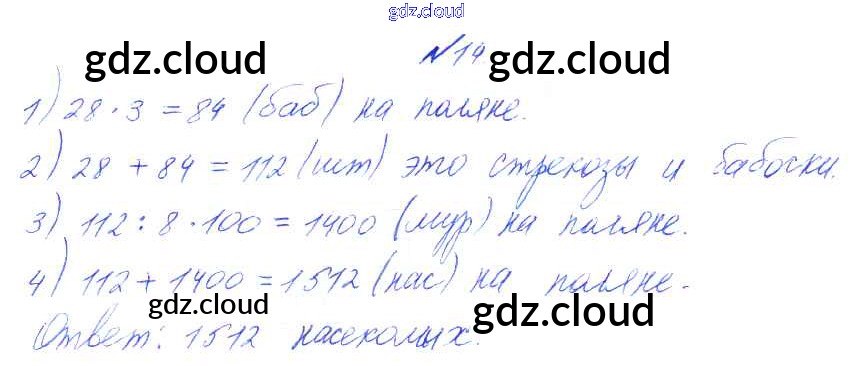 gdz.cloud
№14
gdz.cloud gdz.cloud
1) 28 · 3 = 84 (баб) на поляне.
2) 28 + 84 = 112 (шт) это стрекозы и бабочки.
3) 112 : 8 · 100 = 1400 (мур) на поляне.
4) 112 + 1400 = 1512 (нас) на поляне.
gdz.cloud gdz.cloud
Ответ: 1512 насекомых.